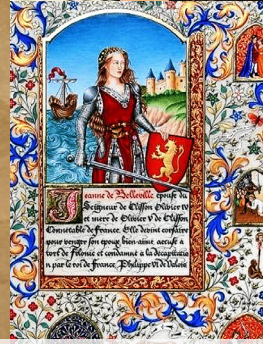 Jeanne de Belleville épouse du
Seigneur de Clisson Olivier IV
et mère de Olivier V de Clisson
Connétable de France. Elle devint corsaire
pour venger son époux bien-aimé, accusé à
tort de félonie et condamné à la décapitatio
n par le roi de France, Philippe VI de Valois